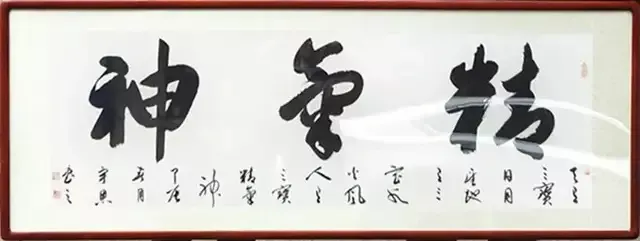 精氣神
天之
三寶
日月
星地
之三
寶水
火風
人之
三寶
精氣
神
丁酉
五月